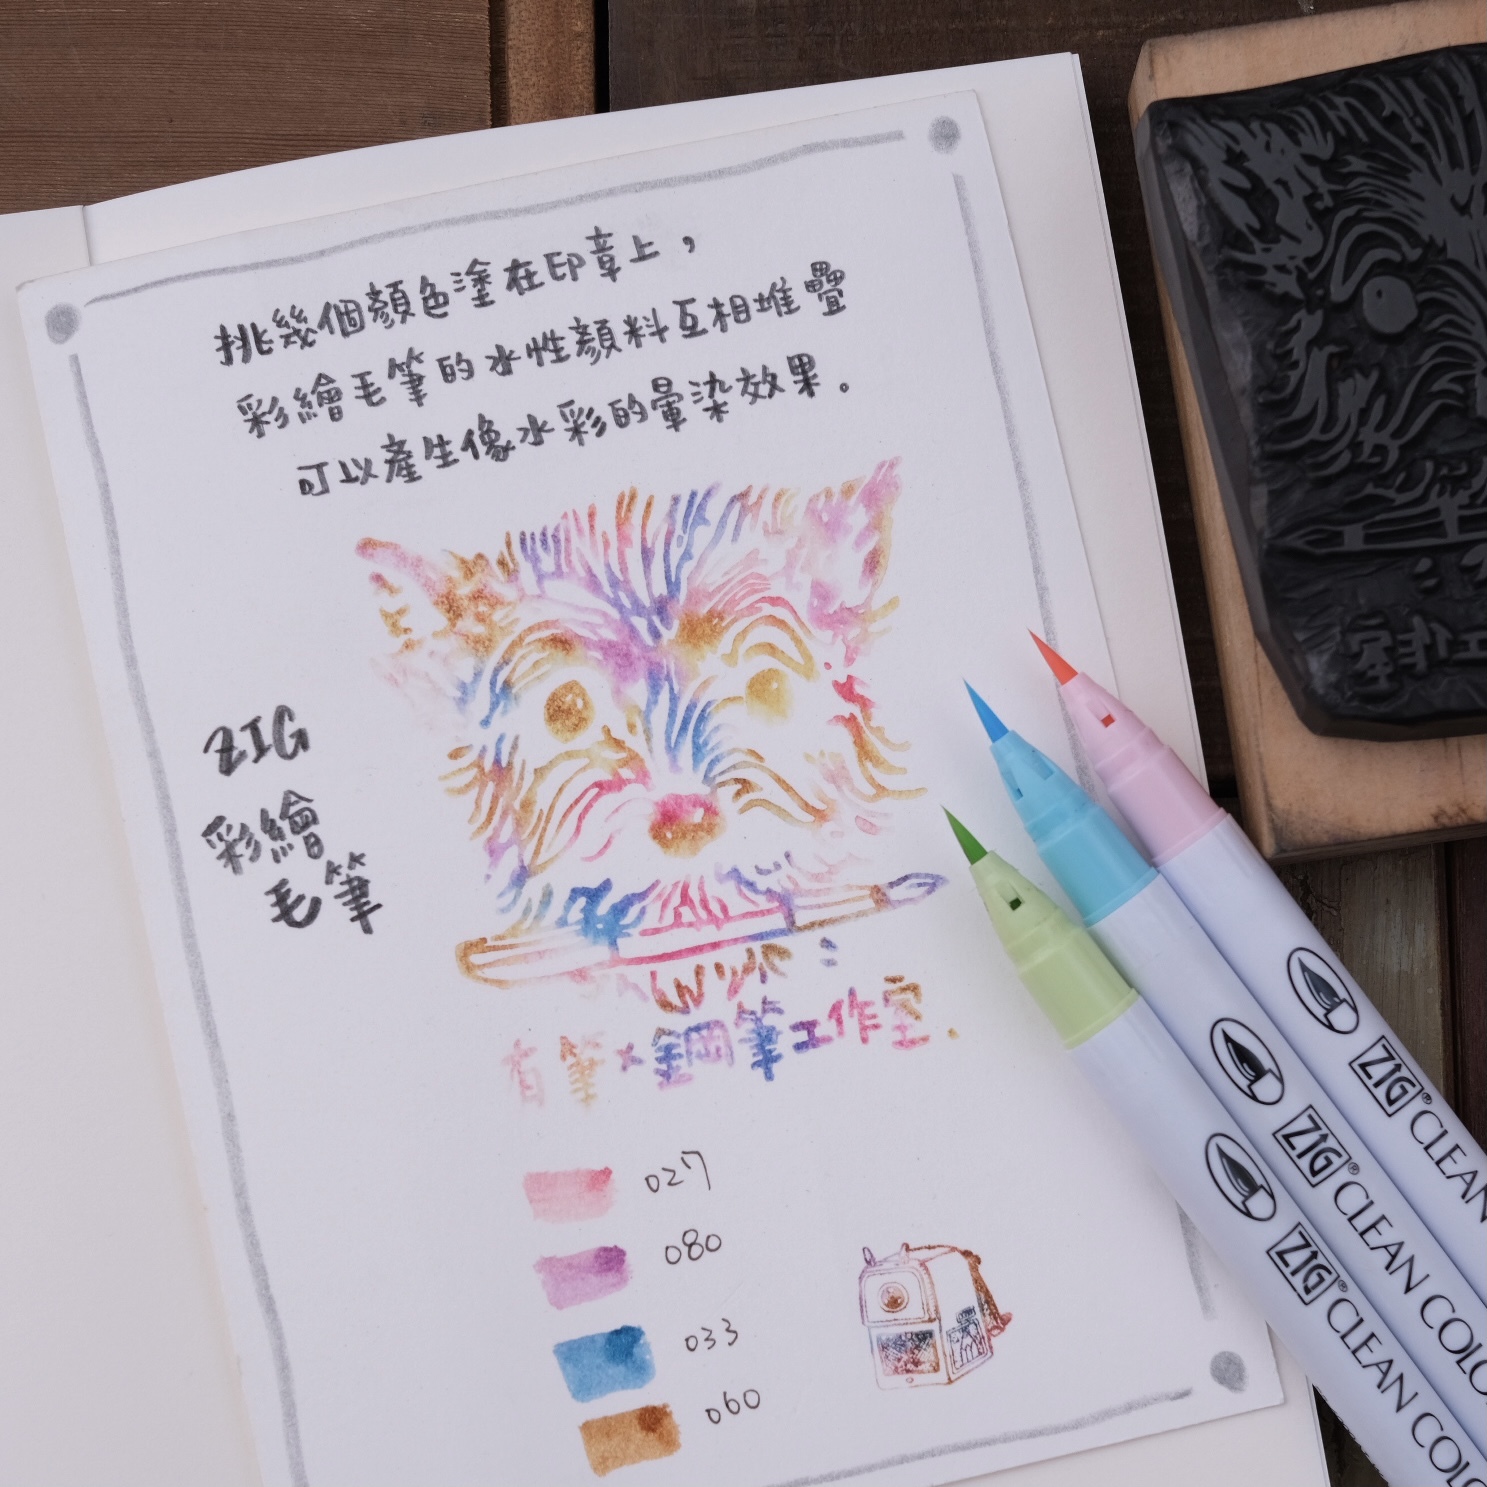 挑幾個顏色塗在印章上，
彩繪毛筆的水性顏料互相堆疊
可以產生像水彩的暈染效果。
ZIG
彩繪
毛筆
有筆×鋼筆工作室.
027
080
033
060
ZIG® CLEAN
ZIG® CLEAN COLO
ZIG® CLEAN COLO
工作室